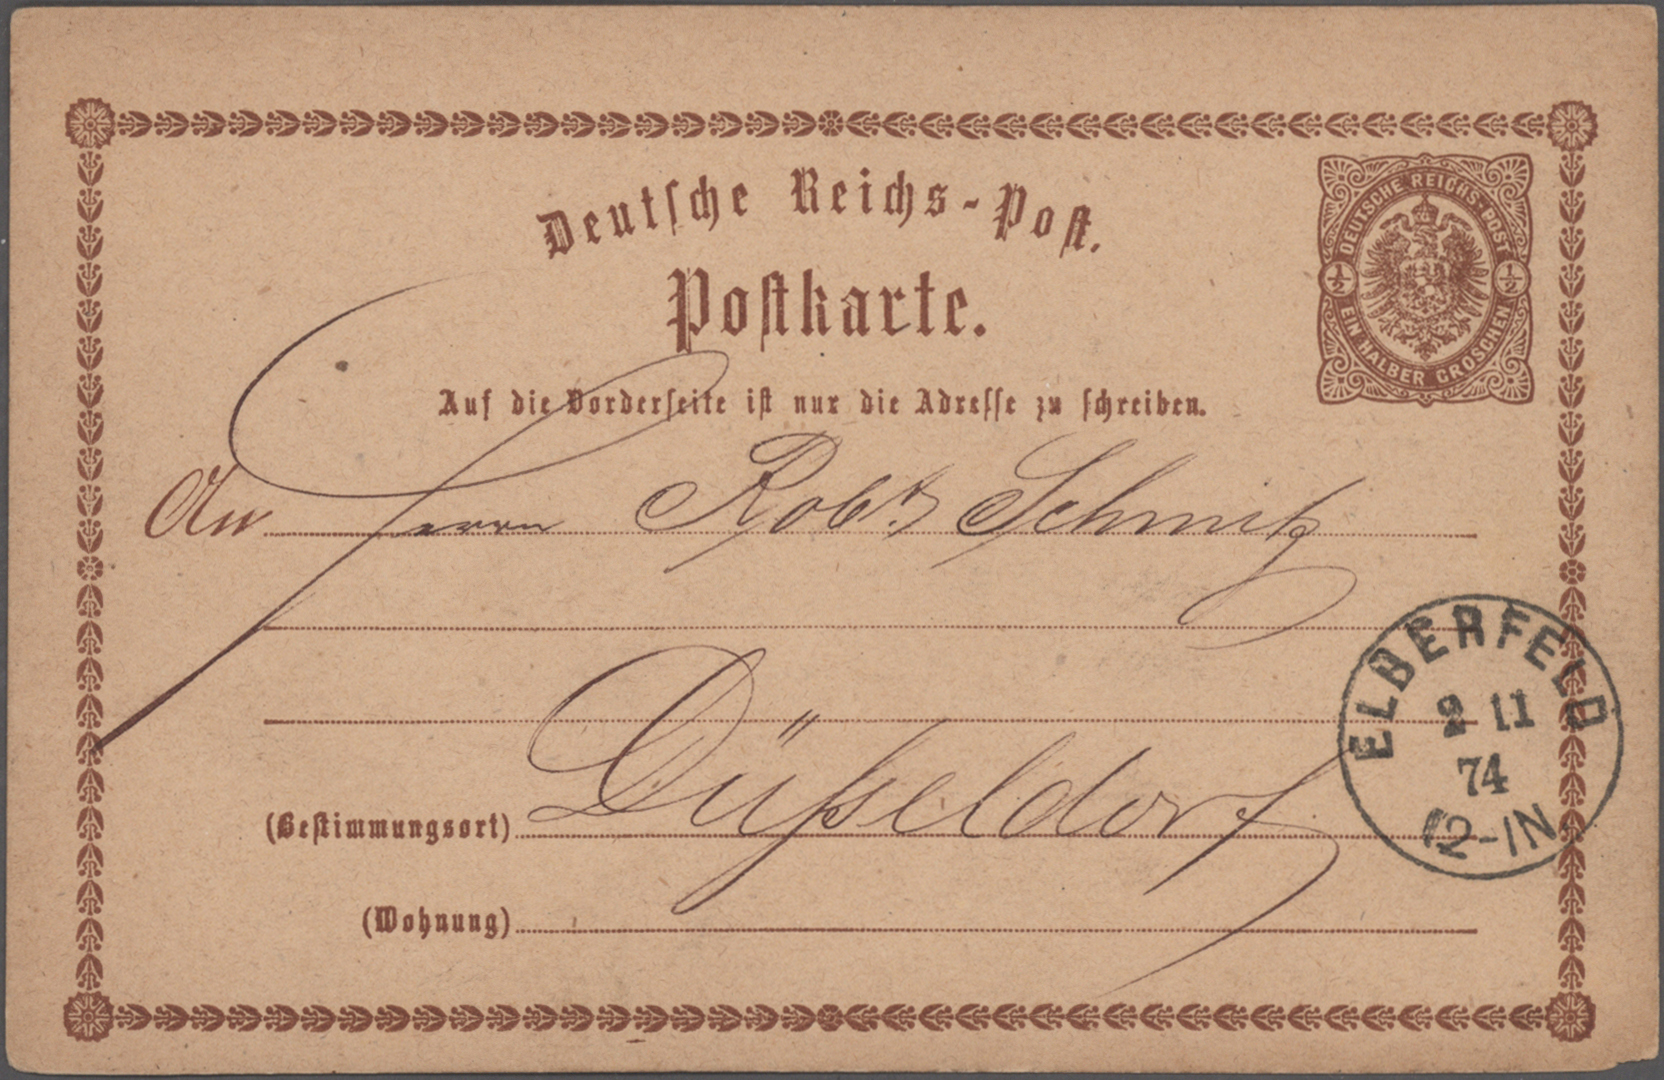 Deutsche Reichs-Post.
DEUTSCHE REICHS-POST
½ ½
EIN HALBER GROSCHEN
Postkarte.
Auf die Vorderseite ist nur die Adresse zu schreiben.
An Herrn Robt. Schmitz
ELBERFELD
2 11
74
12-1N
(Bestimmungsort) Düßeldorf
(Wohnung)